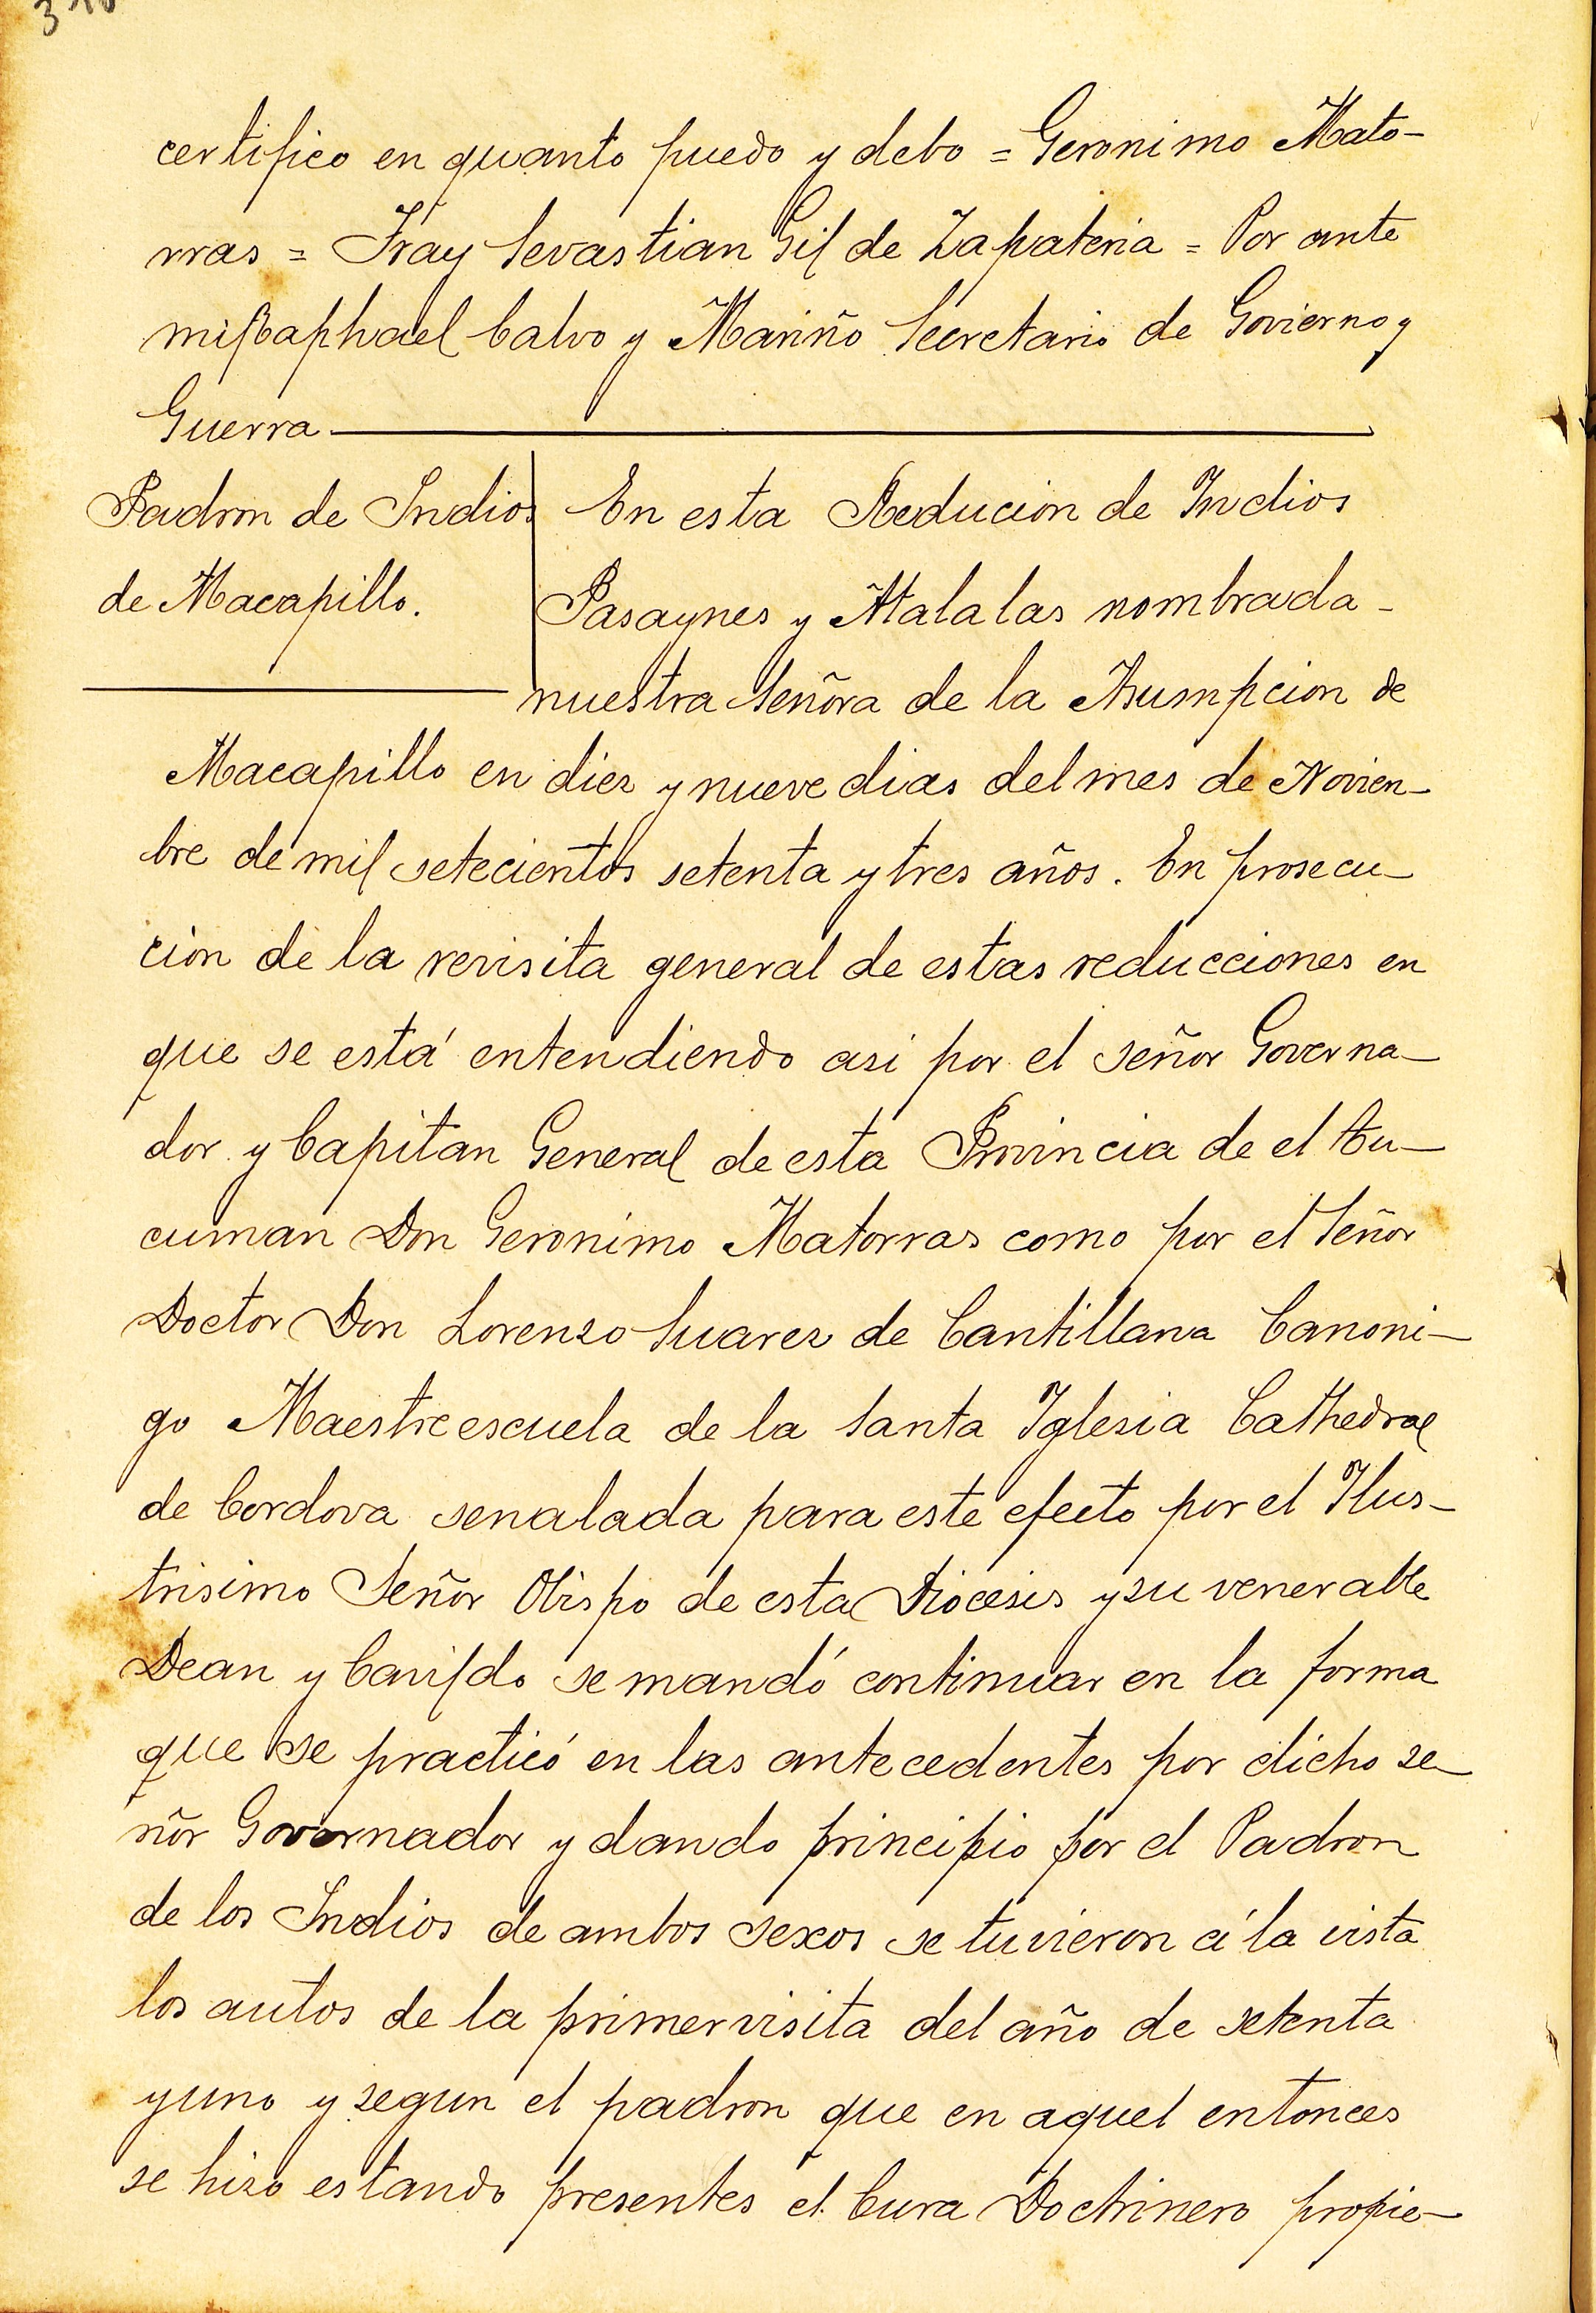 certifico en quanto puedo y debo = Geronimo Mato-
rras = Fray Sevastian Gil de Zapateria = Por ante
mi Raphael Calvo y Mariño Secretario de Govierno y
Guerra
Padron de Indios
de Macapillo.
En esta Reducion de Indios
Pasaynes y Atalalas nombrada -
nuestra Señora de la Asumpcion de
Macapillo en diez y nueve dias del mes de Novien-
bre de mil setecientos setenta y tres años. En prosecu-
cion de la revisita general de estas reducciones en
que se está entendiendo asi por el señor Governa-
dor y Capitan General de esta Provincia de el Tu-
cuman Don Geronimo Matorras como por el Señor
Doctor Don Lorenzo Suarez de Cantillana Canoni-
go Maestreescuela de la Santa Iglesia Cathedral
de Cordova senalada para este efecto por el Ilus-
trisimo Señor Obispo de esta Diocesis y su venerable
Dean y Cavildo se mandó continuar en la forma
que se practicó en las antecedentes por dicho se-
ñor Governador y dando principio por el Padron
de los Indios de ambos sexos se tuvieron á la vista
los autos de la primer visita del año de setenta
y uno y segun el padron que en aquel entonces
se hizo estando presentes el Cura Doctrinero propie-